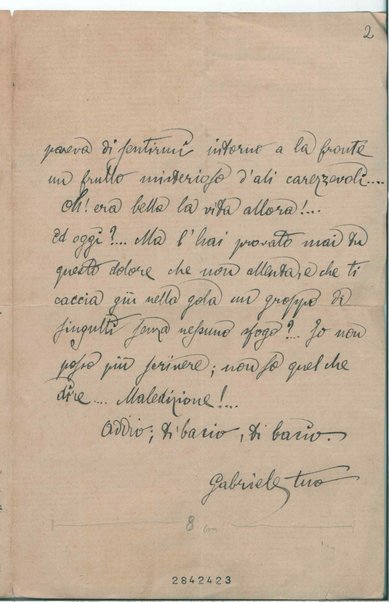 2
pareva di sentirmi intorno a la fronte
un frullo misterioso d'ali carezzevoli....
Oh! era bella la vita allora!....
Ed oggi?.... Ma l'hai provato mai tu
questo dolore che non allenta, e che ti
caccia giù nella gola un groppo di
singulti senza nessuno sfogo?... Io non
posso più scrivere; non so quel che
dire.... Maledizione!....
Addio; ti bacio, ti bacio.
Gabriele tuo
8 cm
2842423